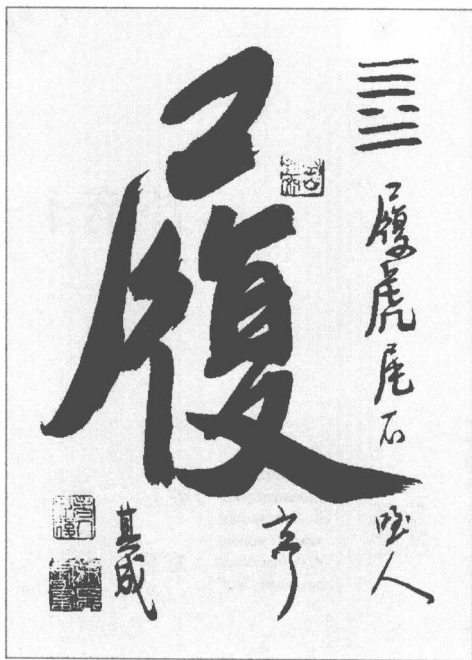 履虎尾不咥人
亨
履
其成